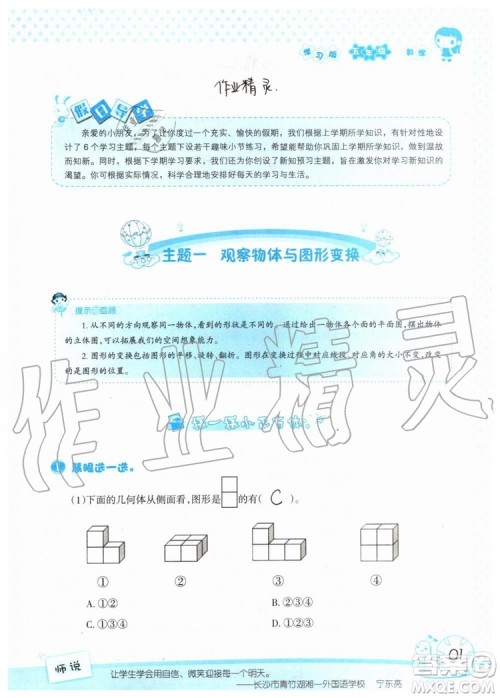 学习园 五年级 数学
作业精灵.
假日导学
亲爱的小朋友，为了让你度过一个充实、愉快的假期，我们根据上学期所学知识，有针对性地设
计了6个学习主题，每个主题都设置若干趣味小节练习，希望能帮你巩固上学期所学知识，做到温故
而知新。同时，根据下学期学习要求，我们已经创设了新知预习主题，旨在激发你对学习新知识的
渴望。你可根据实际情况，科学合理地安排好每天的学习与生活。
主题一 观察物体与图形变换
提示与回顾
1. 从不同的方向观察同一物体，看到的形状是不同的。通过给出一个物体的三个方向的平面图，摆出物体
的立体图，可以拓展我们的空间想象能力。
2. 图形变换包括图形的平移、旋转、翻转。图形在变换过程中与原图形对应线段、对应角的大小不变，改变的是
图形的位置。
作业精灵
摆一摆小正方体。
1 慧眼选一选。
(1)下面的几何体从侧面看，图形是 的有( C )。
① ② ③ ④
A. ①② B. ②③④
C. ①③④ D. ①②③
01
师说
让学生学会用自信、微笑迎接每一个明天。
——长沙市青竹湖湘一外国语学校 宁东亮
MXQE.COM